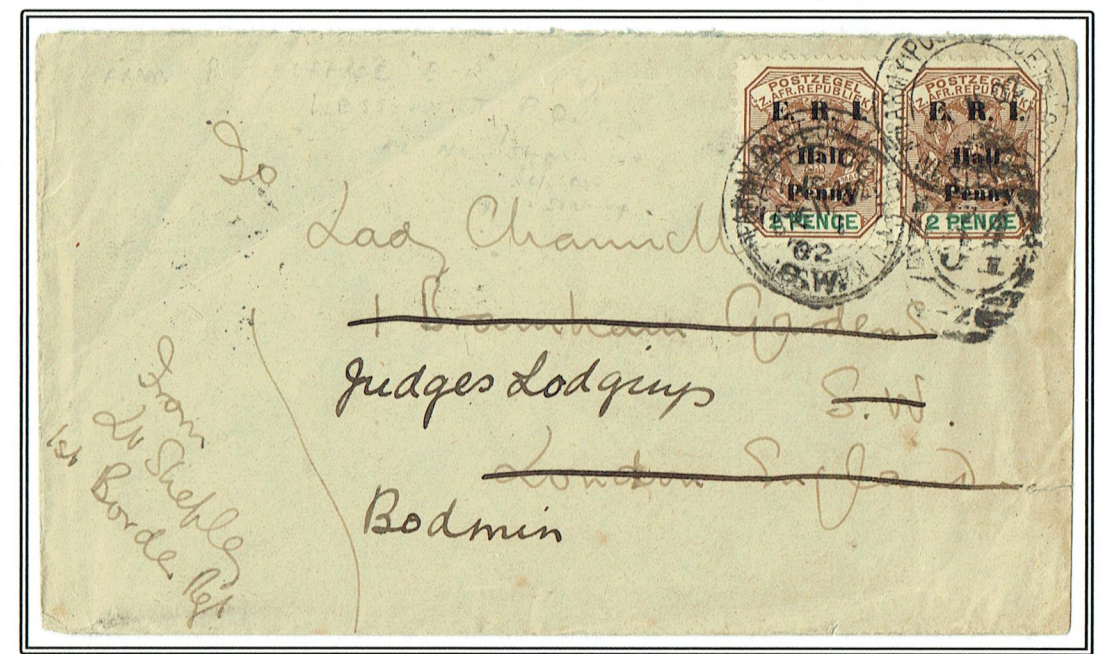 POSTZEGEL
Z. AFR. REPUBLIEK
E. R. I.
Half
Penny
2 PENCE
POSTZEGEL
Z. AFR. REPUBLIEK
E. R. I.
Half
Penny
2 PENCE
ARMY PO
02
To
Lady Channell
1 Bramham Gardens
Judges Lodgings S.W.
London England
Bodmin
From
Lt Shepley
1st Border Rgt